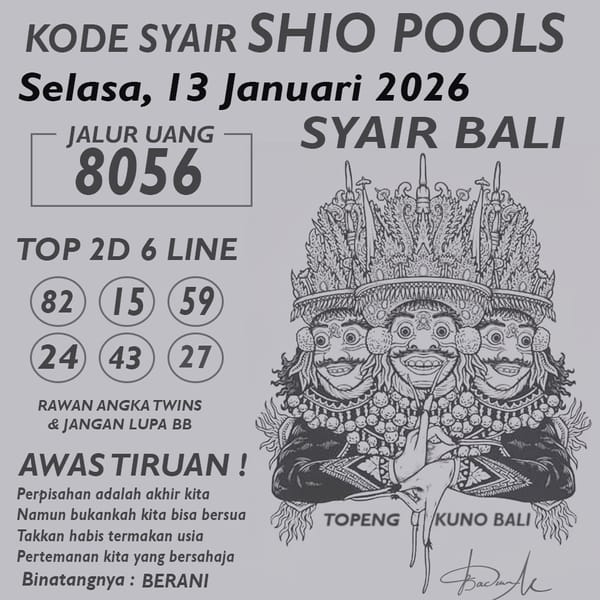 KODE SYAIR SHIO POOLS
Selasa, 13 Januari 2026
JALUR UANG
8056
SYAIR BALI
TOP 2D 6 LINE
82 15 59
24 43 27
RAWAN ANGKA TWINS
& JANGAN LUPA BB
AWAS TIRUAN !
Perpisahan adalah akhir kita
Namun bukankah kita bisa bersua
Takkan habis termakan usia
Pertemanan kita yang bersahaja
Binatangnya : BERANI
TOPENG KUNO BALI